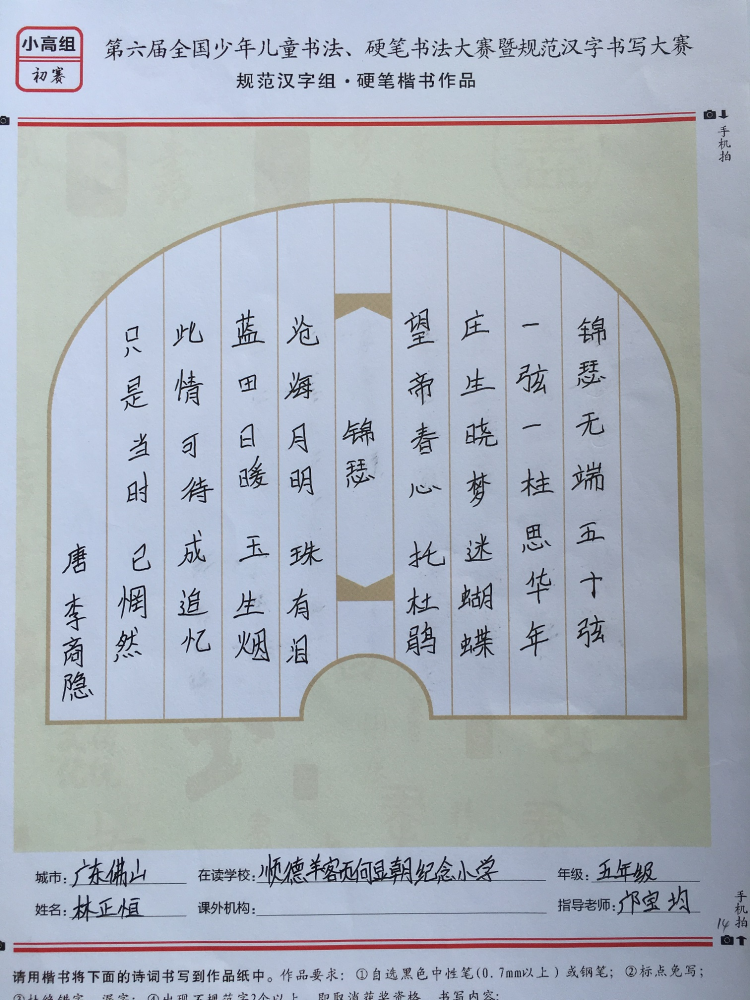 小高组
初赛
第六届全国少年儿童书法、硬笔书法大赛暨规范汉字书写大赛
规范汉字组·硬笔楷书作品
手机拍
锦瑟无端五十弦
一弦一柱思华年
庄生晓梦迷蝴蝶
望帝春心托杜鹃
锦瑟
沧海月明珠有泪
蓝田日暖玉生烟
此情可待成追忆
只是当时已惘然
唐李商隐
城市：广东佛山 在读学校：顺德羊客丙何显朝纪念小学 年级：五年级
姓名：林正恒 课外机构： 指导老师：邝宝均
手机拍
14
请用楷书将下面的诗词书写到作品纸中。作品要求：①自选黑色中性笔(0.7mm以上)或钢笔；②标点免写；
③杜绝错字、漏字；④出现不规范字2个以上，即取消获奖资格。书写内容：